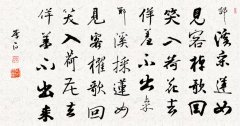 耶溪採蓮女
見客棹歌回
笑入荷花去
佯羞不出来
耶溪採蓮女
見客棹歌回
笑入荷花去
佯羞不出来